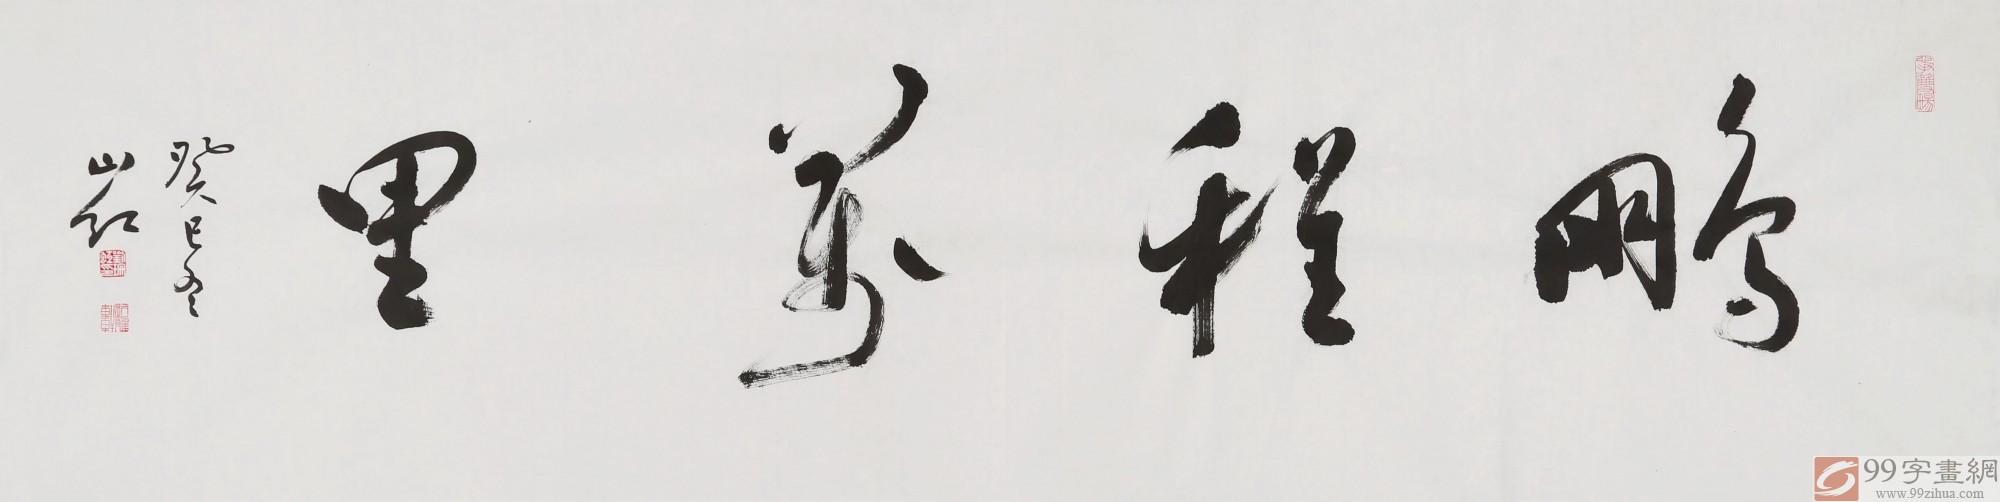 鵬程萬里
癸巳冬
山紅
99字畫網
www.99zihua.com